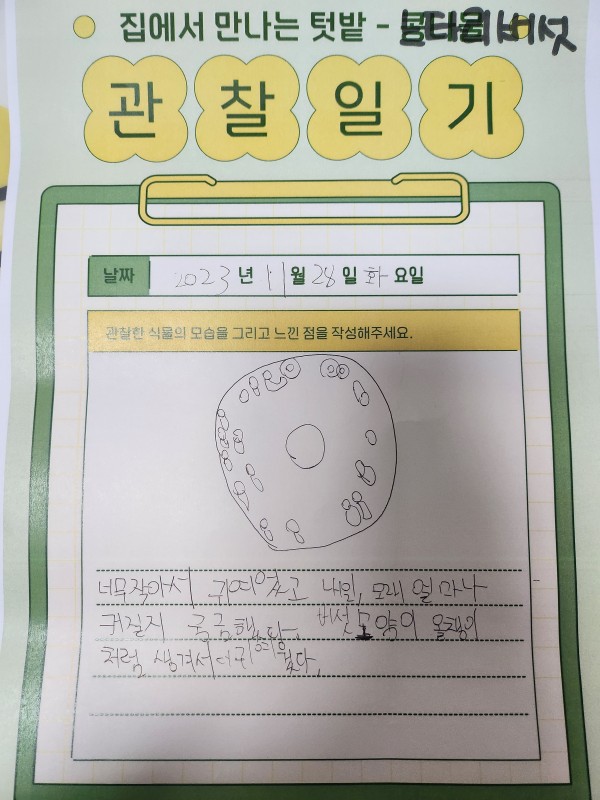 집에서 만나는 텃밭 - 콩나물 느타리버섯
관찰일기
날짜 2023년 11월 28일 화요일
관찰한 식물의 모습을 그리고 느낀 점을 작성해주세요.
너무작아서 귀여웠고 내일, 모래 얼마나
커질지 궁금했다. 버섯모양이 올챙이
처럼 생겨서 더귀여웠다.